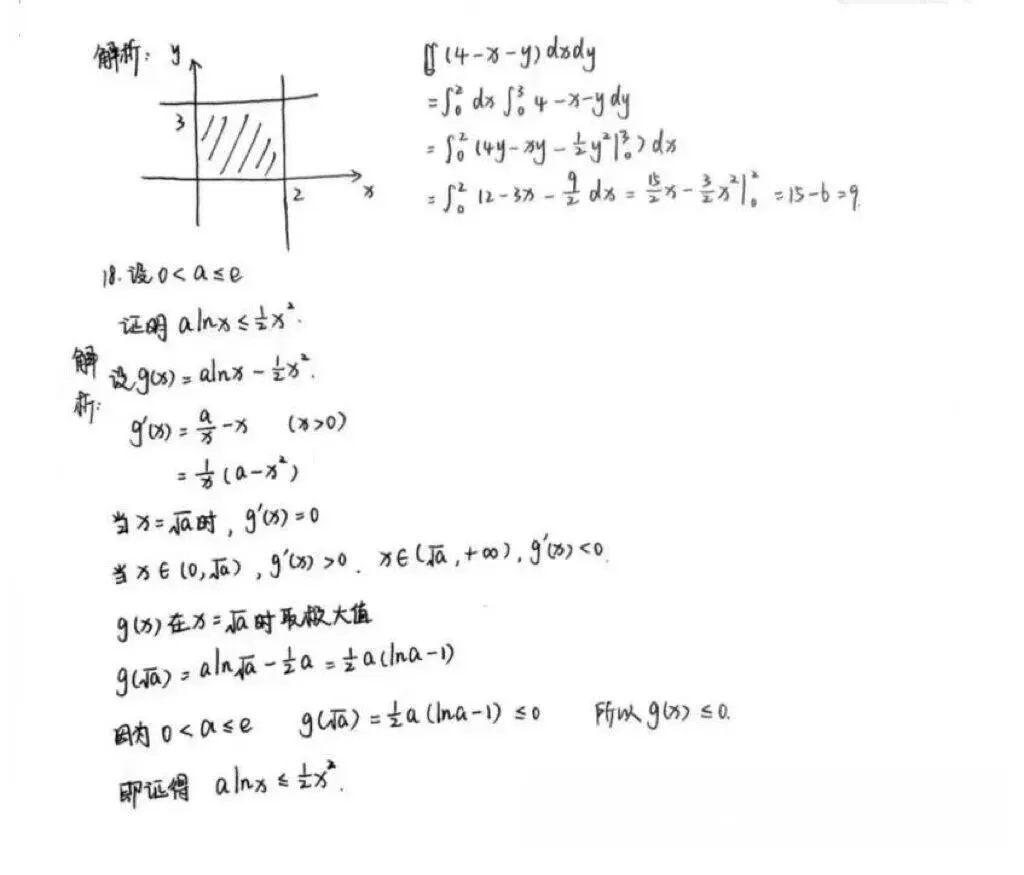 解析: y
3
2
x
∬ (4-x-y) dxdy
= ∫₀² dx ∫₀³ 4-x-y dy
= ∫₀² (4y-xy-½y²|₀³) dx
= ∫₀² 12-3x-9/2 dx = 15/2x-3/2x²|₀² = 15-6=9.
18.设 0<a≤e
证明 alnx≤½x².
解析: 设g(x)=alnx-½x².
g'(x)=a/x-x (x>0)
=1/x(a-x²)
当x=√a时, g'(x)=0
当x∈(0,√a), g'(x)>0. x∈(√a,+∞), g'(x)<0.
g(x)在x=√a时取极大值
g(√a)=aln√a-½a=½a(lna-1)
因为0<a≤e g(√a)=½a(lna-1)≤0 所以g(x)≤0.
即证得 alnx≤½x².